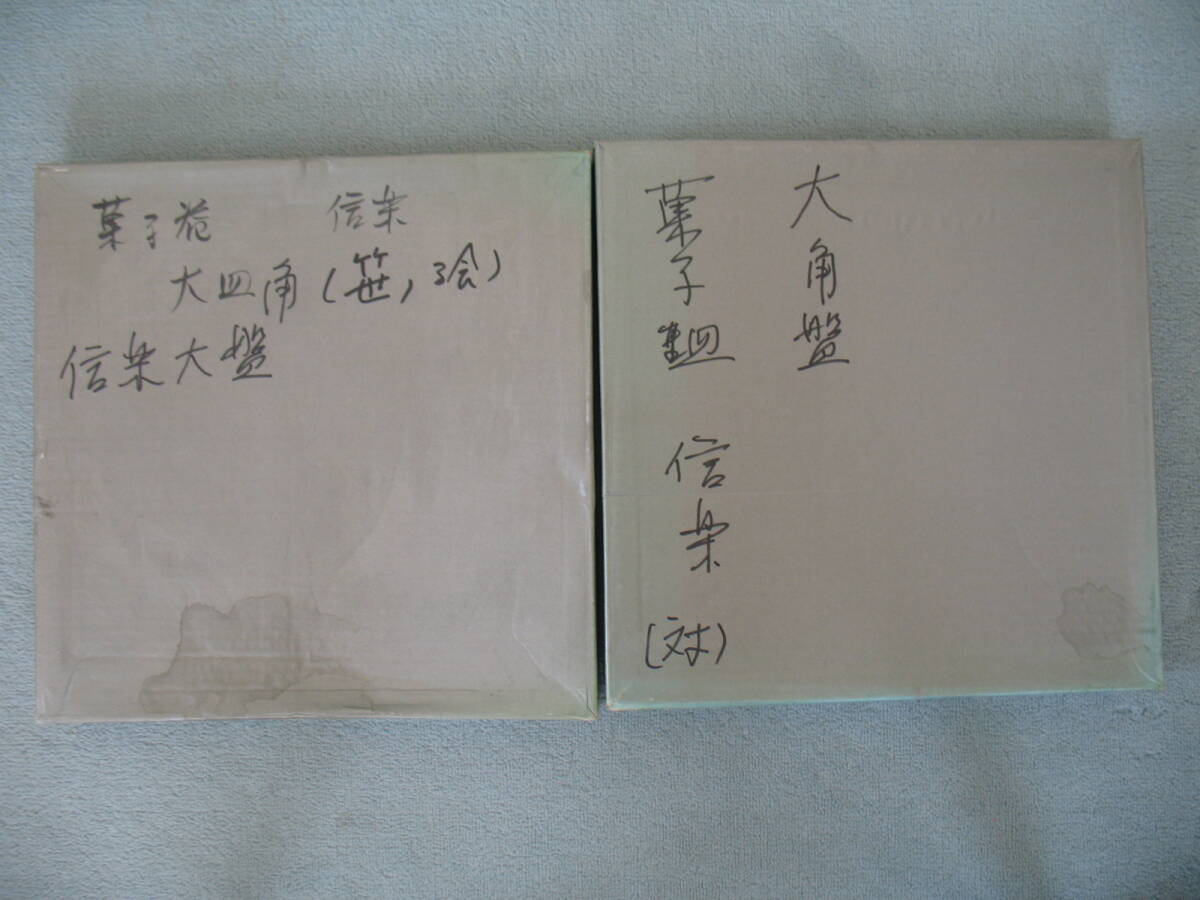 菓子器 信楽
大皿角(笹,絵)
信楽大盤
大角盤
菓子皿 信楽 (対)